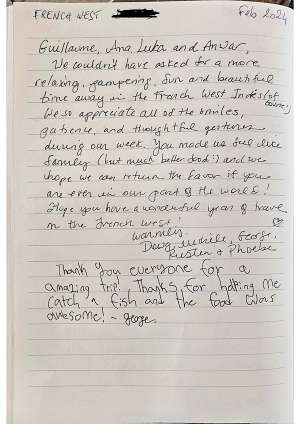 FRENCH WEST
Feb 2024
Guillaume, Ana Luka and Anwar,
We couldn't have asked for a more
relaxing, pampering, fun and beautiful
time away in the French West Indes (of
course!)
We so appreciate all of the smiles,
patience, and thoughtful gestures
during our week. You made us feel like
family (but much better food!) and we
hope we can return the favor if you
are ever in our part of the world!
Hope you have a wonderful year of travel
in the French west!
warmly,
Doug, Michele, George,
Kristen + Phoebe
Thank you everyone for a
amazing trip. Thanks for helping me
catch a fish and the food was
awesome! ~ george.